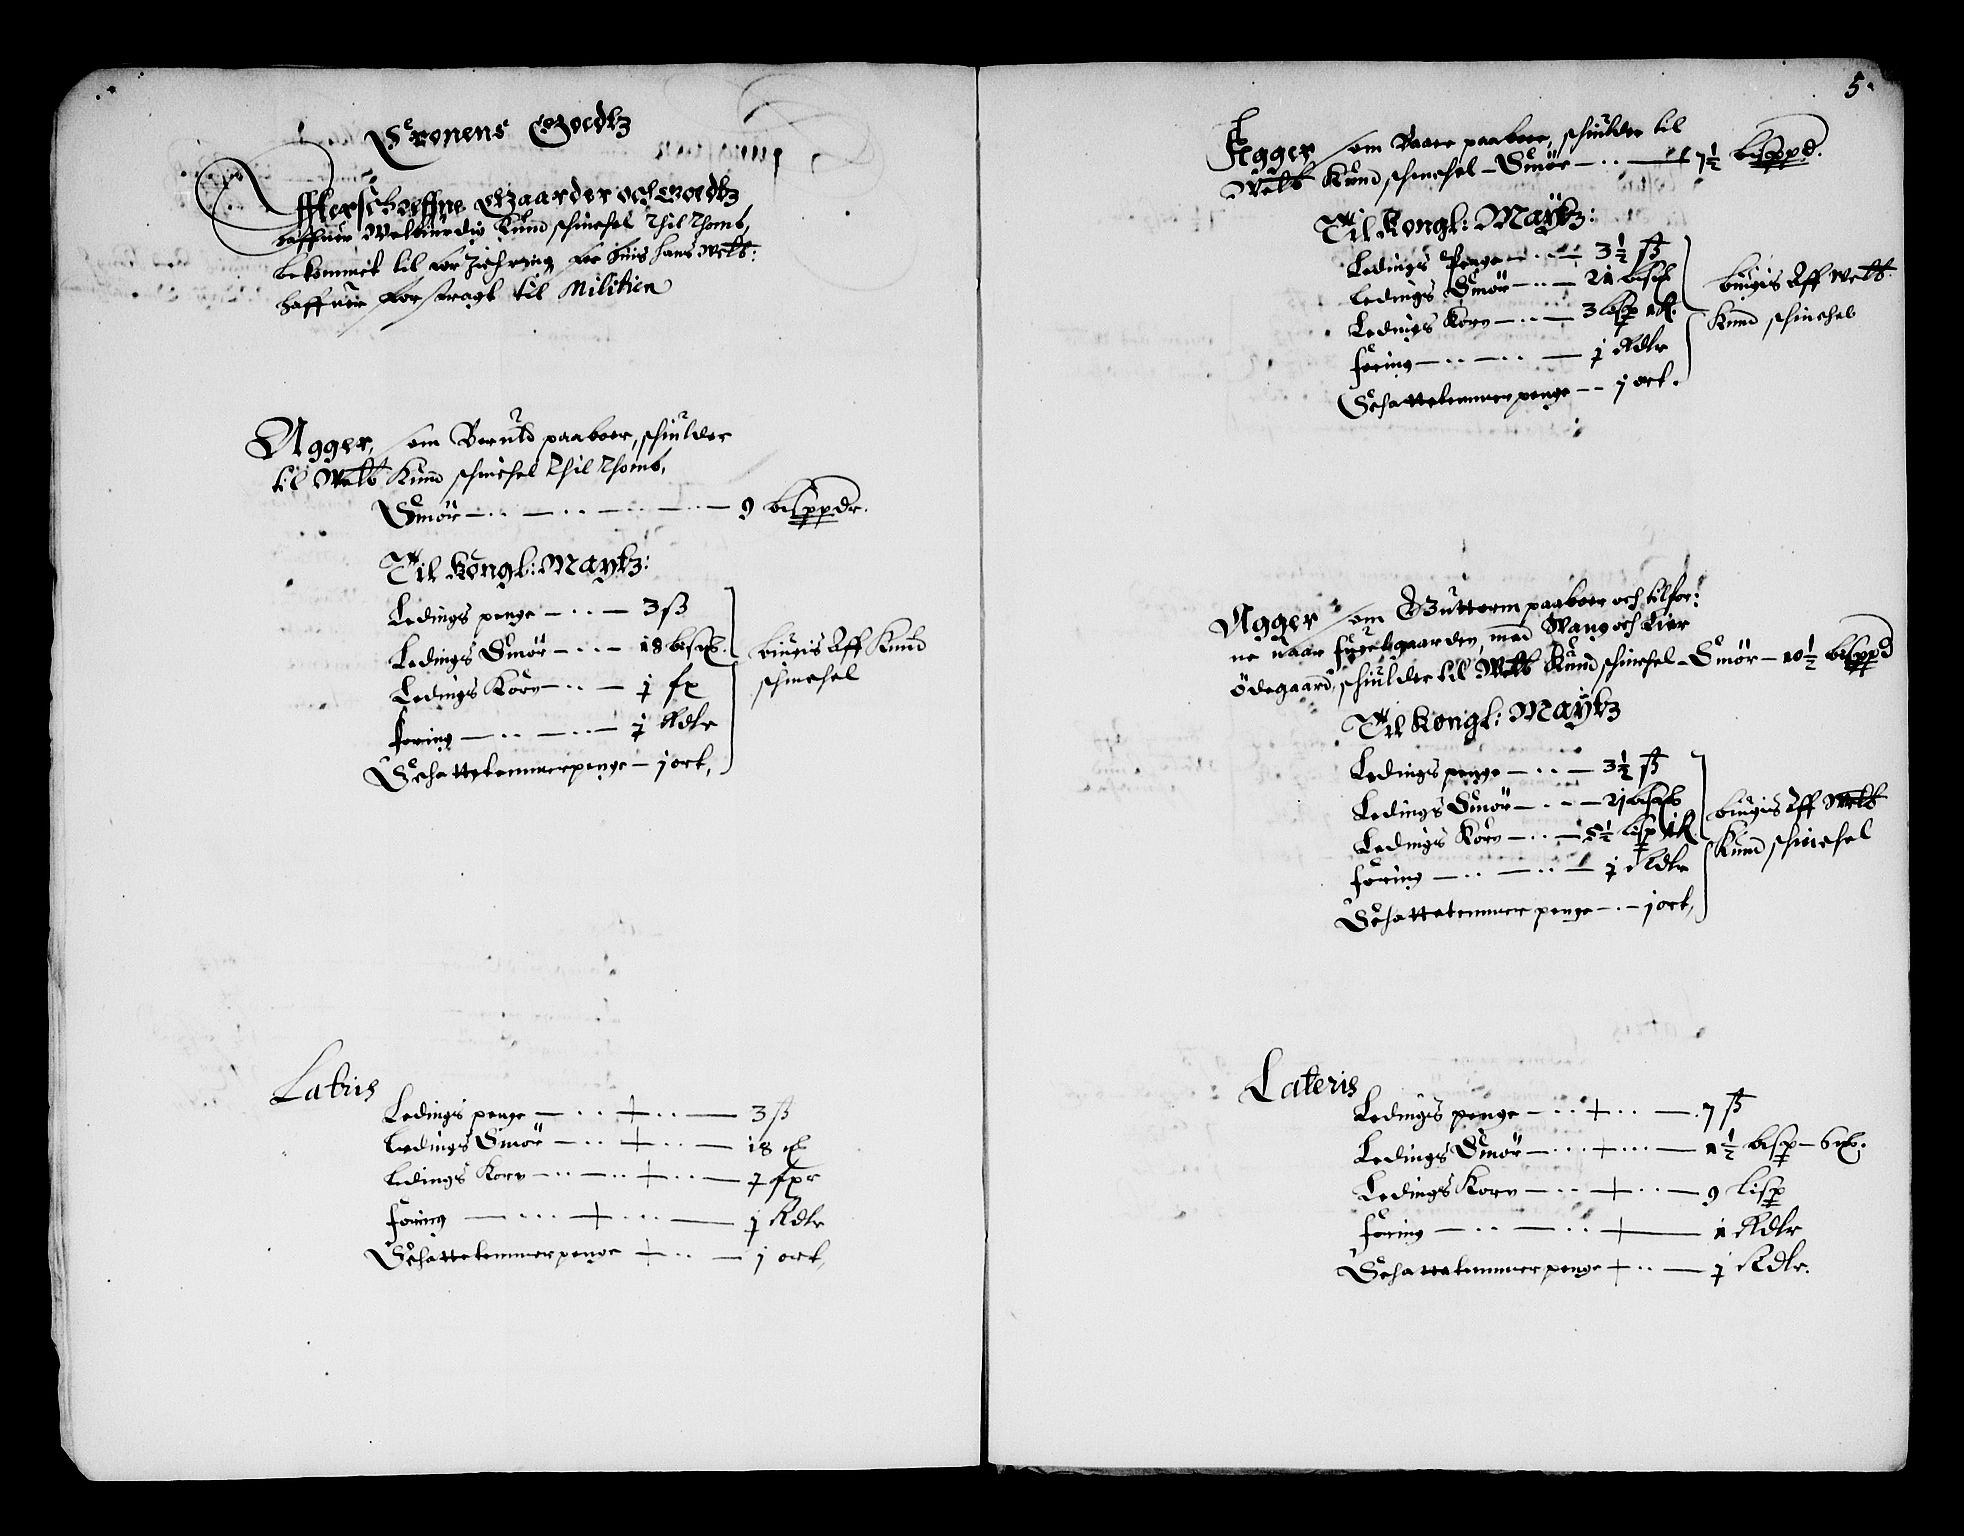 Cronens Goedtz
Effterschreffne Gaarder och Goedtz
haffuer Welbiurdig Knud schinchel Thil Thomb,
bekommet til forziehring for huis hans Welb:
haffuer forstragt til Militien
Agger, som Berutd paaboer, schiulder
til Welb Knud schinchel Thil Thomb,
Smör — 9 bisppdr.
Til Kongl: Maytz:
Ledings penge — 3 ß
Ledings Smör — 18
Ledings Korn — j
foring — j Rdlr
Schattetemmerpenge — j ort,
biugis Aff Knud
schinchel
Latris
Ledings penge — 3 ß
Ledings Smör — 18
Ledings Korn — j
foring — j Rdlr
Schattetemmerpenge — j ort,
5
Agger som Baare paaboer, schiulder til
Welb Knud schinchel - Smör — 7½ bisppd.
Til Kongl: Maytz:
Ledings Penge — 3½ ß
Ledings Smör — 21
Ledings Korn — 3 lisp
foring — j Rdlr
Schattetemmerpenge — j ort.
biugis Aff Welb
Knud schinchel
Agger som Gutterm paaboer och tilfor:
ne naar fugelsgaarden, med Wang och Lier
ödegaard, schiulder til Welb Knud schinchel - Smör — 10½ bisppd
Til Kongl: Maytz
Ledings penge — 3½ ß
Ledings Smör — 2j
Ledings Korn — 5½ lisp
foring — j Rdlr
Schattetemmer penge — j ort,
biugis Aff Welb
Knud schinchel
Lateris
Ledings penge — 7 ß
Ledings Smör — 1½ bisp - 6
Ledings Korn — 9 lisp
foring — Rdlr
Schattetemmerpenge — j Rdlr.